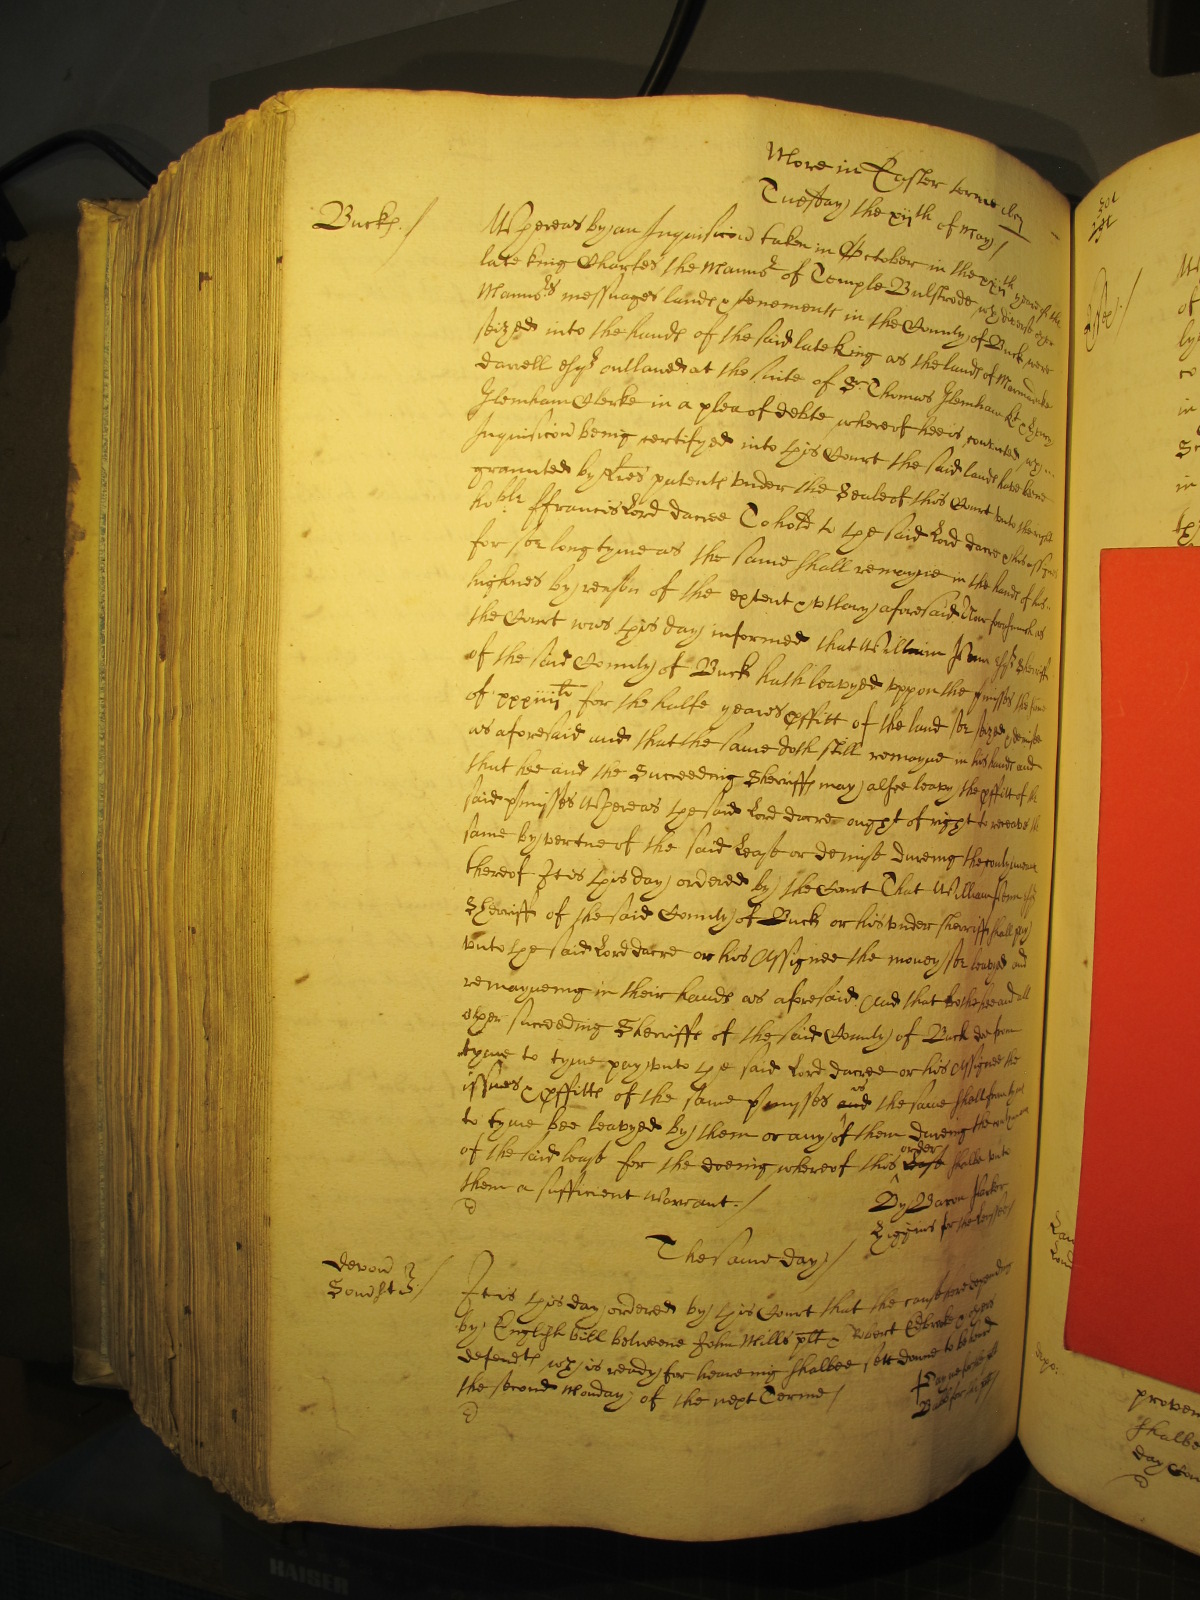 More in Easter terme
Tuesday the xijth of May /
Bucks. /
Whereas by an Inquisicion taken in October in the xxijth yeare of the
late king Charles the Mannor of Temple Bulstrode wth diverse other
Mannors messuages lands & tenements in the County of Buck were
seized into the hands of the said late king as the lands of Marmaduke
darrell esqr outlawed at the suite of Sr Thomas Glemham kt & Henry
Glemham Clerke in a plea of debte whereof hee is convicted wch
Inquisicion being certifyed into this Court the said lands have bene
graunted by tres patents under the Seale of this Court unto the right
hoble ffrancis Lord dacree To hold to the said Lord dacre & his assignes
for soe long tyme as the same shall remayne in the hands of his
highnes by reason of the extent & utlary aforesaid Now forasmuch as
the Court was this day informed that William Penn esqr Sherriffe
of the said County of Buck hath leavyed uppon the pmisses the some
of xxxiiijli for the halfe yeares pffitt of the land soe seized & demised
as aforesaid and that the same doth still remayne in his hands and
that hee and the Succeeding Sherriffs may alsoe leavy the pffitt of the
said pmisses Whereas the said Lord dacre ought of right to receave the
same by vertue of the said Lease or demise dureing the continuance
thereof It is this day ordered by the Court That William Penn esqr
Sherriffe of the said County of Buck or his under sherriffe shall pay
unto the said Lord dacre or his Assignee the money soe leavyed and
remayneing in their hands as aforesaid. And that bothe hee and all
other succeeding Sherriffs of the said County of Buck doe from
tyme to tyme pay unto the said Lord dacree or his Assignee the
issues & pffitts of the same pmysses and as the same shall from tyme
to tyme bee leavyed by them or any of them dureing the continuance
of the said lease for the doeing whereof this lease order shalbe unto
them a sufficient warrant. /
By Baron Parker
Higgins for the lessee /
The same day /
devon
Somst /
It is this day ordered by this Court that the cause here depending
by English bill betweene John Mills plt & Robert & others
defendts wch is ready for heareing shalbee sett downe to be heard
the second Monday of the next Terme /
for the plt
for the defts